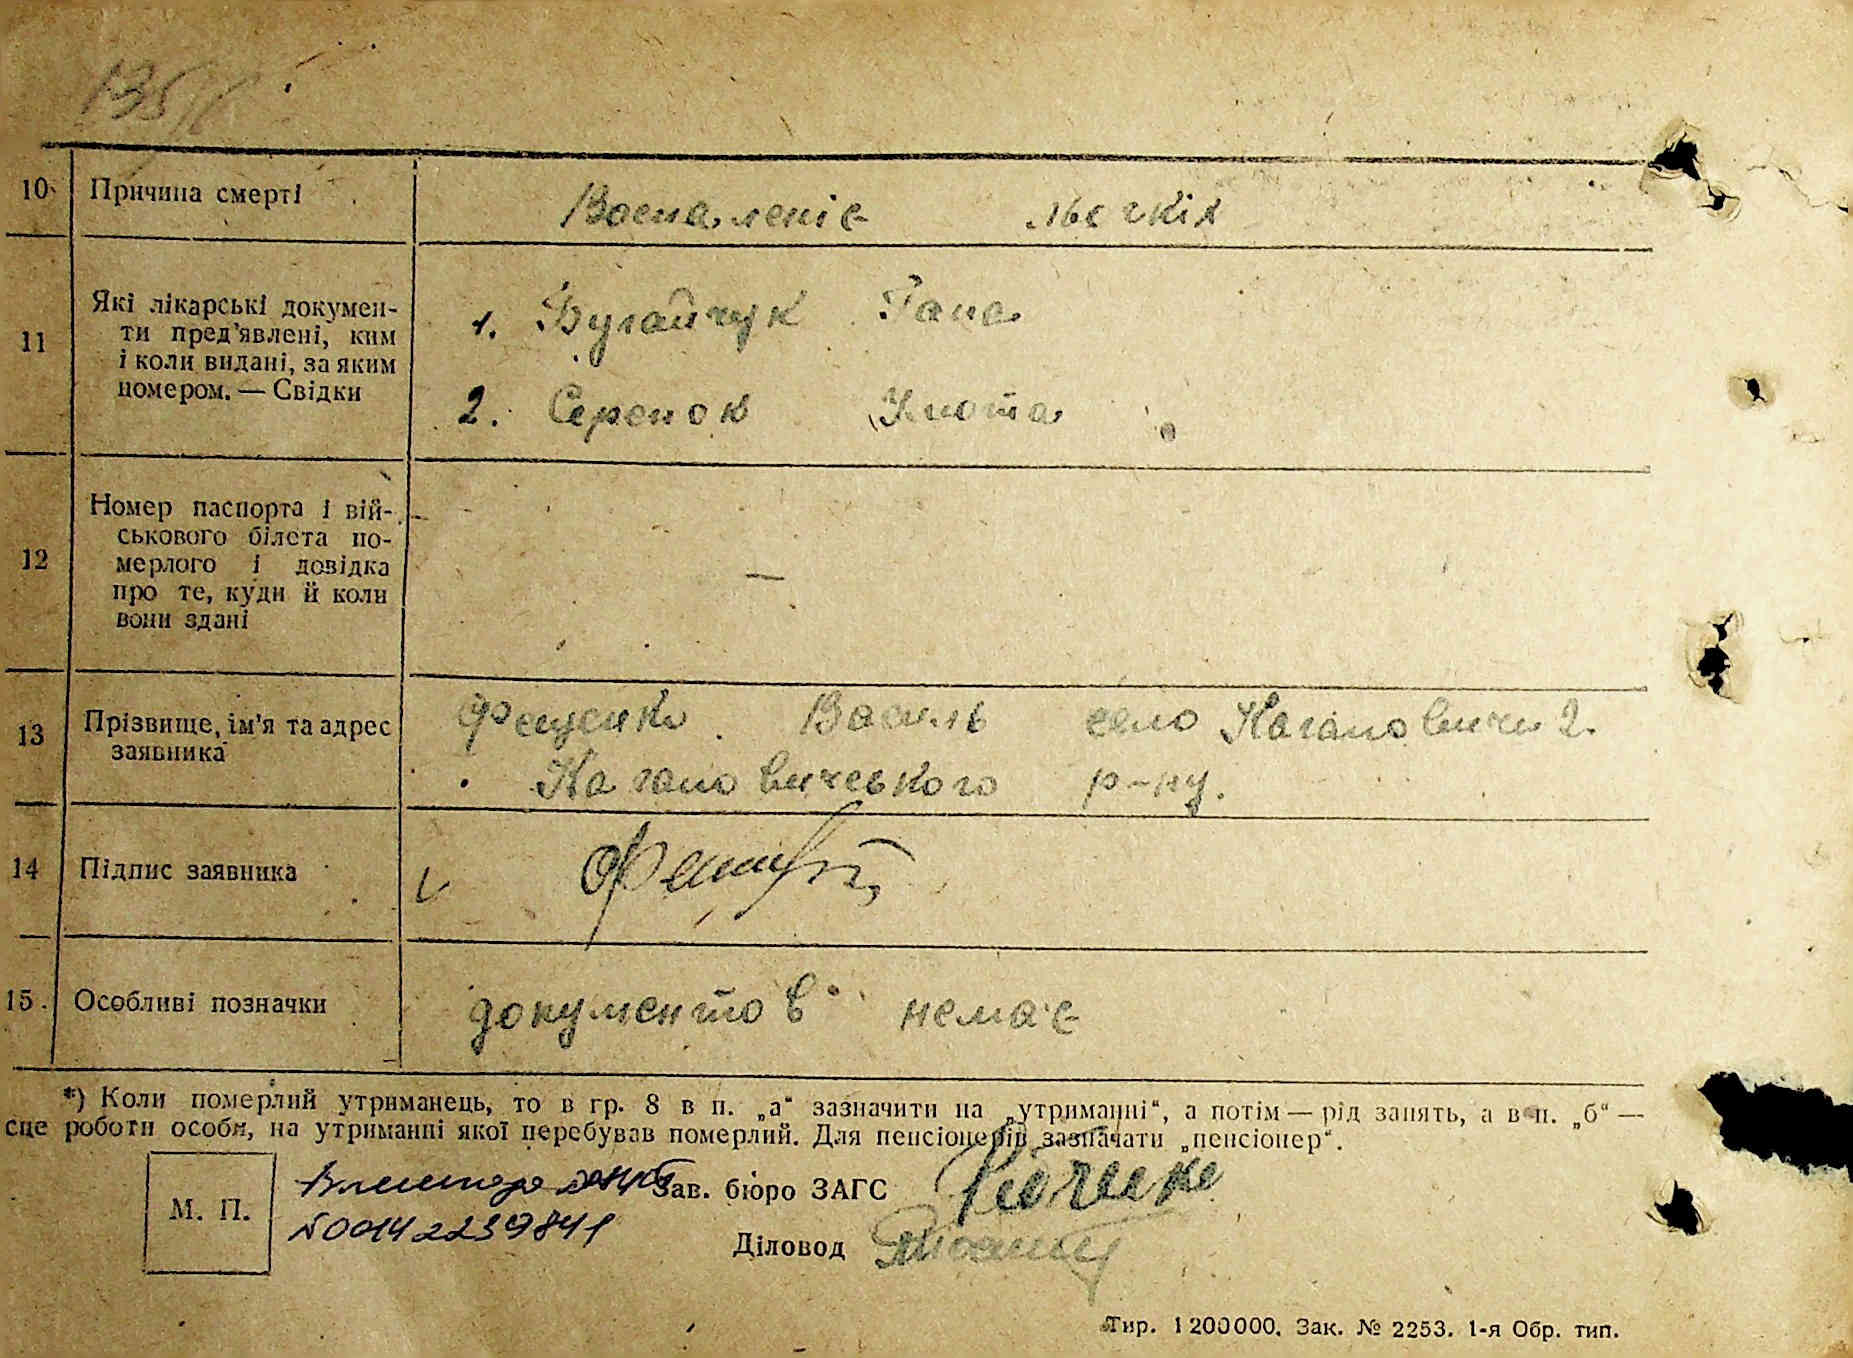 135
10 Причина смерті Воспаленіє льогкіх
11 Які лікарські докумен-
ти пред'явлені, ким
і коли видані, за яким
номером. — Свідки
1. Бугайчук Гана
2. Серенок
12 Номер паспорта і вій-
ськового білета по-
мерлого і довідка
про те, куди й коли
вони здані
—
13 Прізвище, ім'я та адрес
заявника
Фещенко Василь село Кагановичи 2.
Кагановичського р-ну.
14 Підпис заявника
15. Особливі позначки документов немає
*) Коли померлий утриманець, то в гр. 8 в п. „а“ зазначити на „утриманні“, а потім — рід занять, а в п. „б“ —
сце роботи особи, на утриманні якої перебував померлий. Для пенсіонерів зазначати „пенсіонер“.
М. П.
№00142239841
Зав. бюро ЗАГС
Діловод
Тир. 1200000. Зак. № 2253. 1-я Обр. тип.